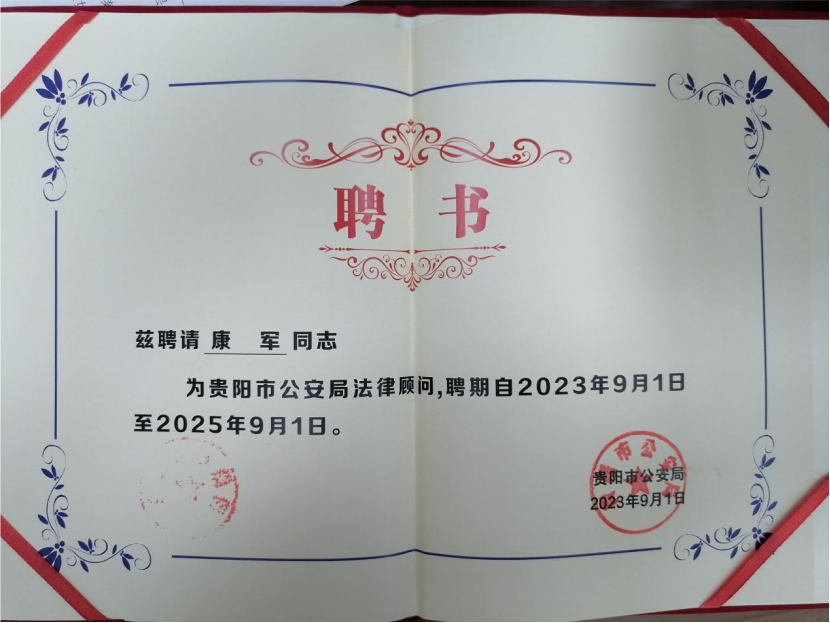 聘 书
兹聘请 康 军 同志
为贵阳市公安局法律顾问,聘期自2023年9月1日
至2025年9月1日。
贵阳市公安局
2023年9月1日